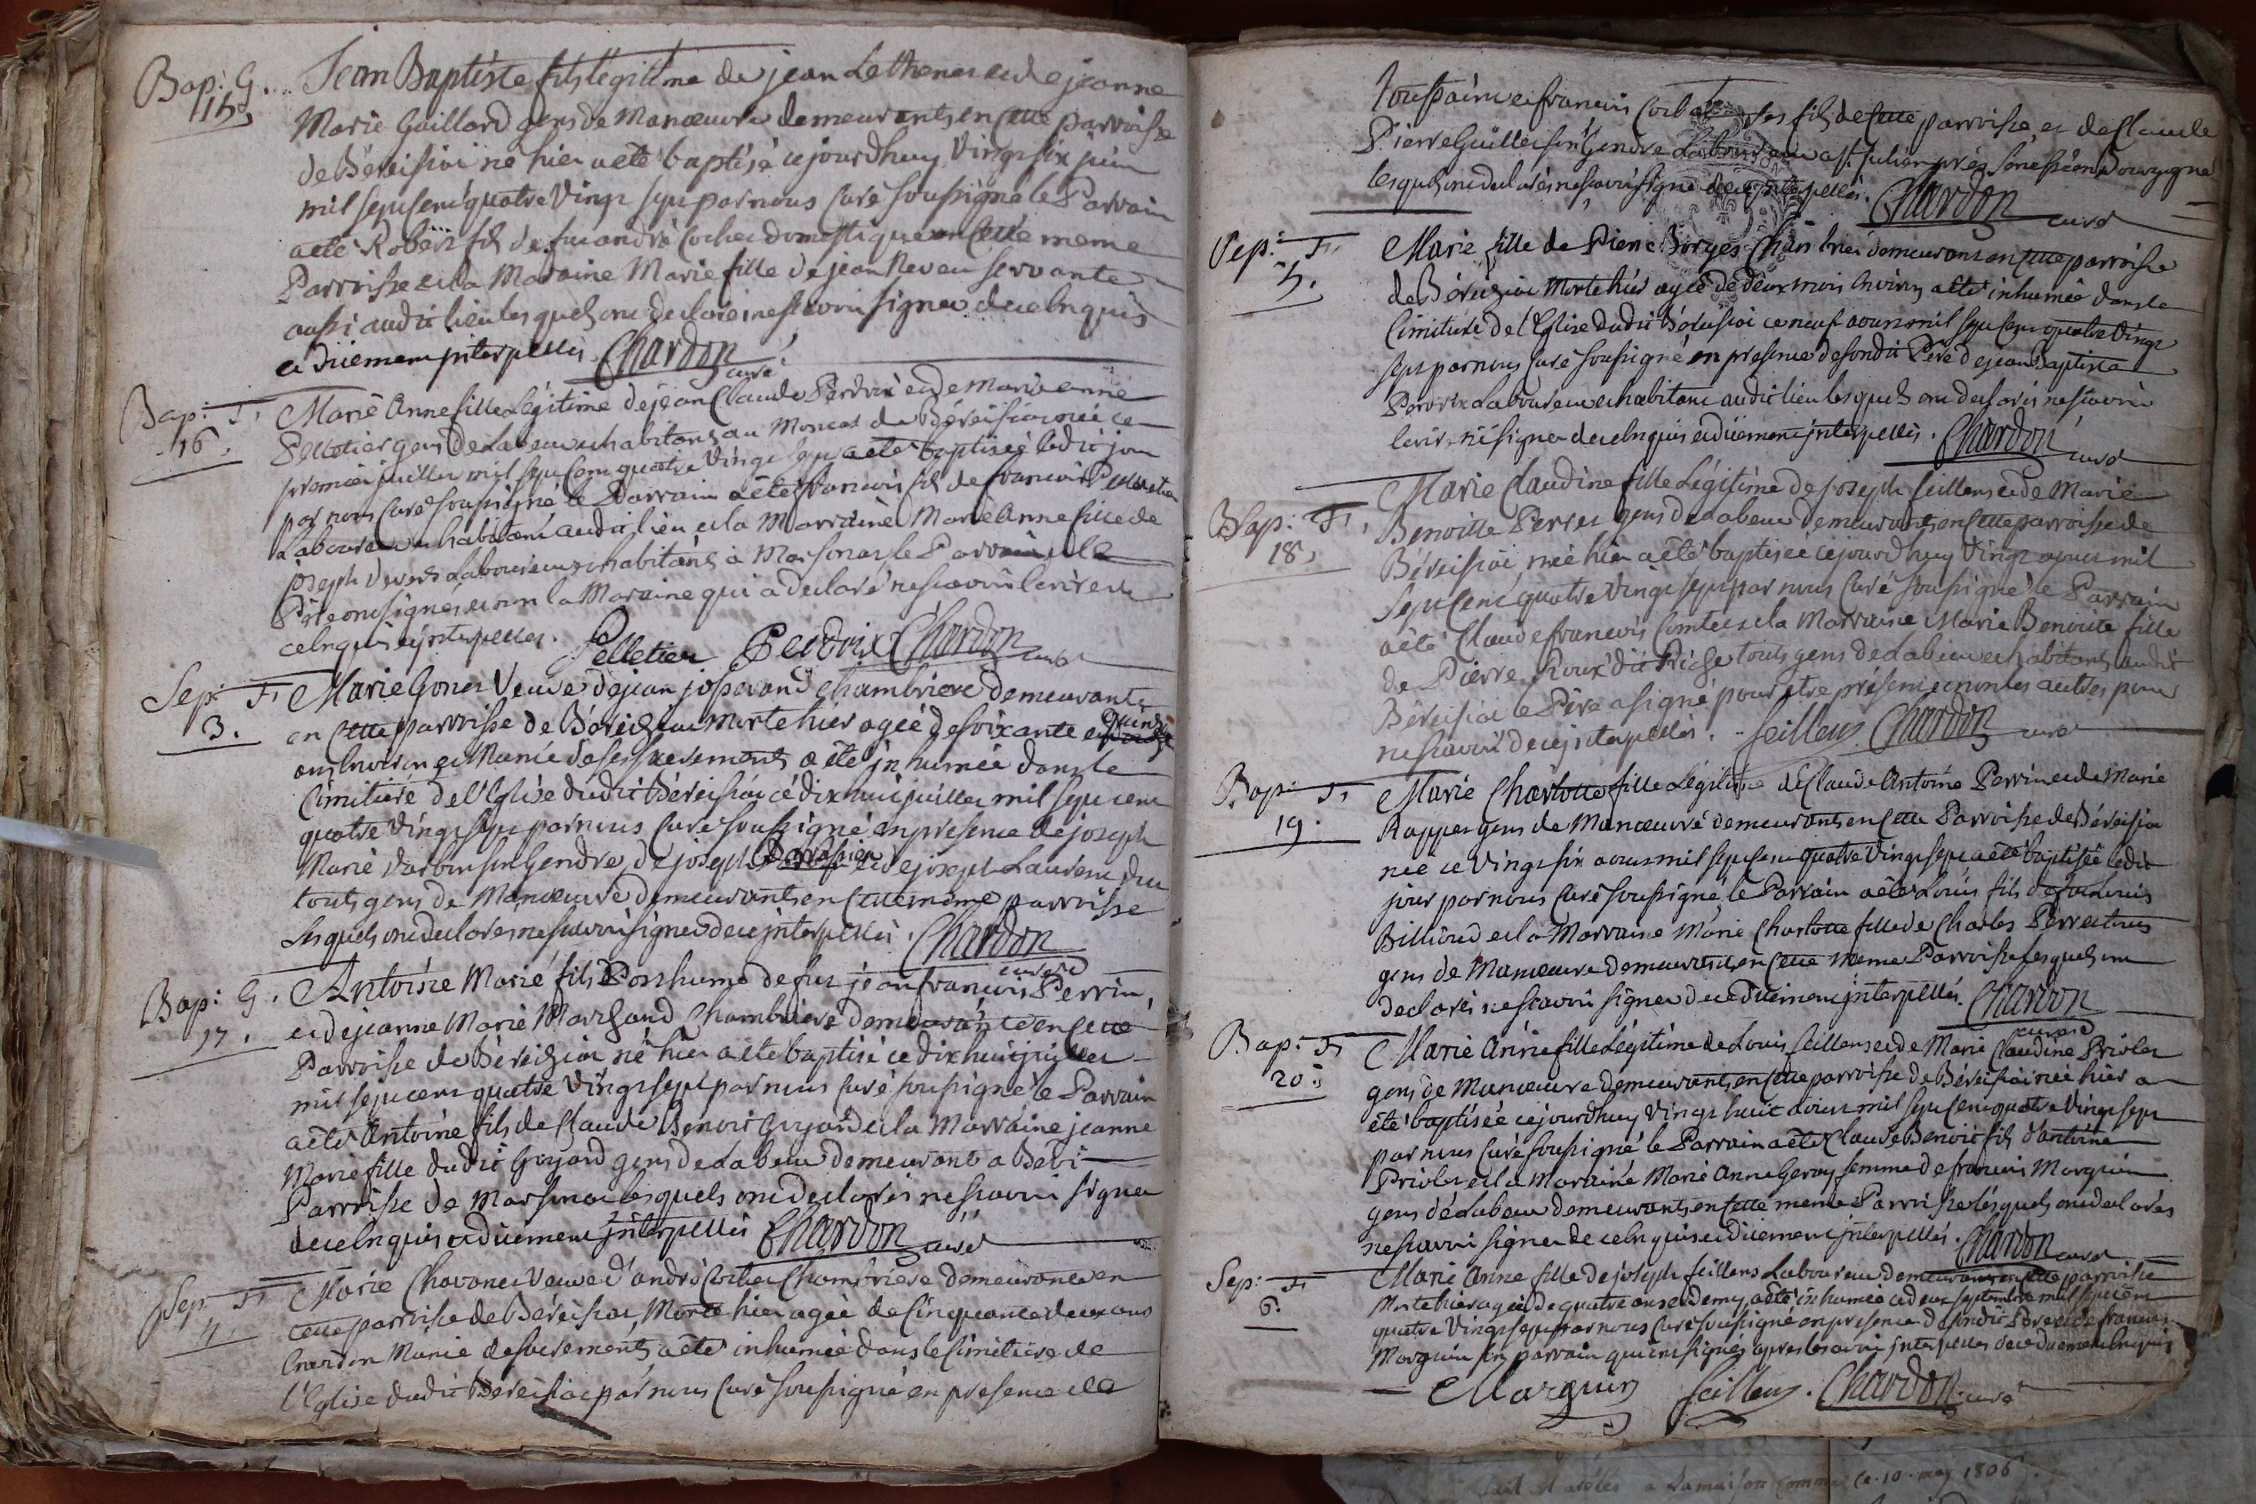 Bap: G. 15.
Jean Baptiste fils légitime de jean Lethenet et de jeanne
Marie Guillard gens de Manœuvre demeurants en cette parroisse
de Béreisiat né hier a été baptisé ce jourdhuy vingt six juin
mil sept cent quatre vingt sept par nous Curé soussigné le Parrain
a été Robert fils de feu andré Cochet domestique en cette meme
Parroisse et la Maraine Marie fille de jean Neveu servante
aussi audit lieu lesquels ont declaré ne scavoir signer de ce enquis
et düement interpellés Chardon curé
Bap: F. 16.
Marie Anne fille Légitime de jean Claude Perdrix et de Marie anne
Pelletier gens de Labeur habitants au Moncet de Béreisiat née ce
premier juillet mil sept Cent quatre vingt sept a été baptisée ledit jour
par nous Curé soussigné le Parrain a été francois fils de francois Pelletier
Laboureur habitant audit lieu et la Marraine Marie Anne fille de
joseph Laboureur habitants à Marsonas le Parrain et le
Pere ont signés et non la Maraine qui a declaré ne scavoir lecrire de
ce enquis et interpellés. Pelletier Perdrix Chardon curé
Sep: F. 3.
Marie Gonet Veuve de jean josserand Chambriere demeurante
en cette parroisse de Béreisiat morte hier agée de soixante et quinze
ans environ et Munie de ses sacrements a été jnhumée dans le
Cimitiere de l'Eglise dudit Béreisiat ce dix huit juillet mil sept cent
quatre vingt sept par nous Curé soussigné en presence de joseph
Marie Varbon son Gendre, de joseph et de joseph Laurent
touts gens de Manœuvre demeurants en cette même parroisse
Lesquels ont declarés ne scavoir signer de ce jnterpellés. Chardon curé
Bap: G. 17.
Antoine Marie fils Posthume de feu jean francois Perrin,
et de jeanne Marie Marchand Chambriere demeurante en cette
Parroisse de Béreisiat né hier a été baptisé ce dix huit juillet
mil sept cent quatre vingt sept par nous Curé soussigné le Parrain
a été Antoine fils de Claude Benoit Guyard et la Marraine jeanne
Marie fille dudit Guyard gens de Labeur demeurants a
Parroisse de Marsonas lesquels ont declarés ne scavoir signer
de ce enquis et düement jnterpellés Chardon curé
Sep: F. 4.
Marie Chavanet Veuve d'andré Cochet Chambriere demeurante en
cette parroisse de Béreisiat, Morte hier agée de Cinquante deux ans
environ Munie de sacrements a été inhumée dans le Cimitiere de
l'Eglise dudit Bereisiat par nous Curé soussigné en presence de
Toussaint et francois Cochet ses fils de cette parroisse et de Claude
Pierre Guillet son Gendre Laboureur a St. julien en Bourgogne
lesquels ont declarés ne scavoir signé de ce jnterpellés. Chardon curé
Sep: F. 5.
Marie fille de Pierre Borges demeurant en cette parroisse
de Béreisiat Morte hier agée de deux mois environ a été inhumée dans le
Cimitiere de l'Eglise dudit Béreisiat ce neuf aoust mil sept cent quatre vingt
sept par nous Curé soussigné en presence de sondit Pere de jean Baptiste
Perdrix Laboureur habitant audit lieu lesquels ont declarés ne scavoir
lecrire ni signer de ce enquis et düement jnterpellés. Chardon curé
Bap: F. 18.
Marie Claudine fille Légitime de joseph feillens et de Marie
Benoitte Perret gens de Labeur demeurants en cette parroisse de
Béreisiat née hier a été baptisée ce jourdhuy vingt aoust mil
sept Cent quatre vingt sept par nous Curé soussigné le Parrain
a été Claude francois Comte et la Marraine Marie Benoite fille
de Pierre Roux dit touts gens de Labeur habitants audit
Béreisiat le Pere a signé pour etre présent et non les autres pour
ne scavoir de ce jnterpellés. feillens Chardon curé
Bap: F. 19.
Marie Charlotte fille Légitime de Claude Antoine Perrin et de Marie
gens de Manœuvre demeurants en cette Parroisse de Béreisiat
née ce vingt six aoust mil sept cent quatre vingt sept a été baptisée ledit
jour par nous Curé soussigné le Parrain a été Louis fils de feu Louis
Billioud et la Marraine Marie Charlotte fille de Charles Perret touts
gens de Manœuvre demeurants en cette meme Parroisse lesquels ont
declarés ne scavoir signer de ce düement jnterpellés. Chardon curé
Bap: F. 20.
Marie Anne fille Légitime de Louis feillens et de Marie Claudine Priolet
gens de Manœuvre demeurants en cette parroisse de Béreisiat née hier a
été baptisée ce jourdhuy vingt huit aoust mil sept Cent quatre vingt sept
par nous Curé soussigné le Parrain a été Claude Benoit fils d'antoine
Priolet et la Maraine Marie Anne Geray femme de francois Morguin
gens de Labeur demeurants en cette meme Parroisse lesquels ont declarés
ne scavoir signer de ce enquis et düement jnterpellés. Chardon curé
Sep: F. 6.
Marie Anne fille de joseph feillens Laboureur demeurant en cette parroisse
Morte hier agée de quatre ans et demy a été inhumée ce deux septembre mil sept cent
quatre vingt sept par nous Curé soussigné en presence de sondit Pere et de francois
Morguin son parrain qui ont signés jnterpellés de ce düement enquis
Marguin feillens. Chardon curé
a Lamaison Commune Ce 10 may 1806